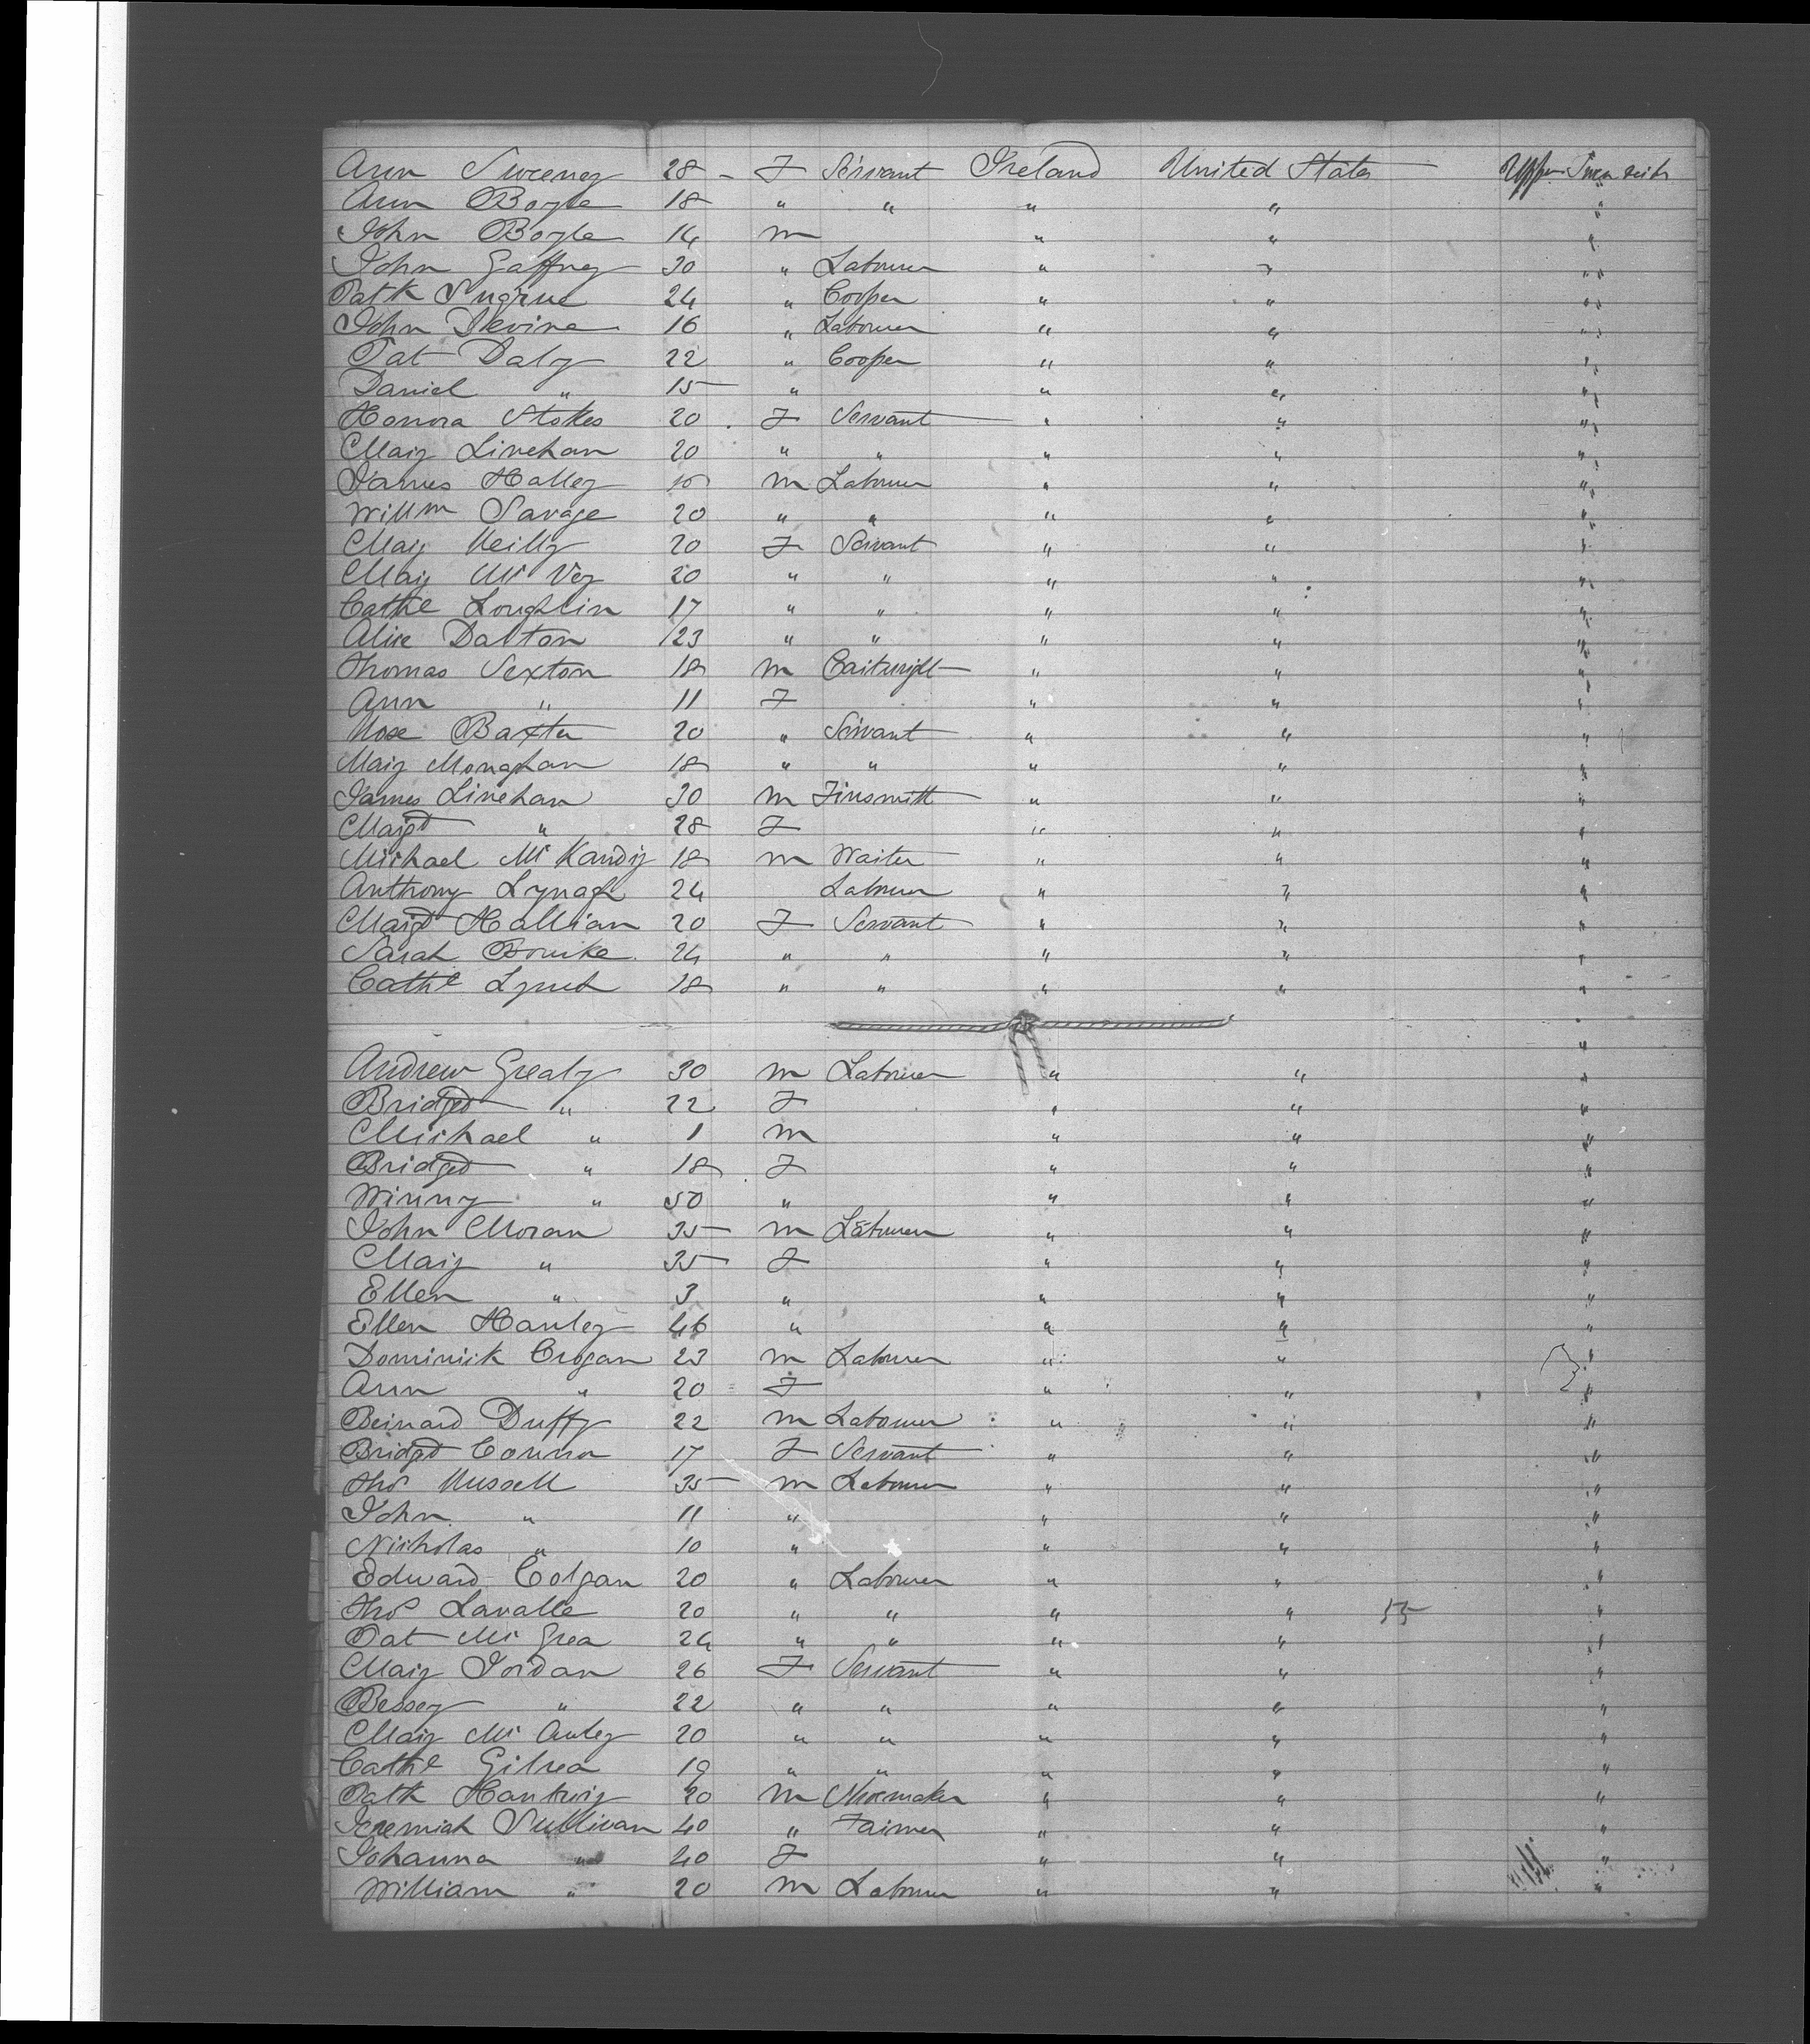 Ann Sweeney 28 - F Servant Ireland United States Upper Tween
Ann Boyle 18 " " " " "
John Boyle 14 m " " "
John Gaffney 30 " Labourer " " "
Patk Sugrue 24 " Cooper " " "
John Devine 16 " Labourer " " "
Pat Daly 22 " Cooper " " "
Daniel " 15 " " " "
Honora Stokes 20 F Servant " " "
Mary Linehan 20 " " " " "
James Halley m Labourer " " "
Willm Savage 20 " " " " "
Mary Reilly 20 F Servant " " "
Mary Mc Vey 20 " " " " "
Cathe Loughlin 17 " " " " "
Alice Dalton 23 " " " " "
Thomas Sexton 18 m Cartwright " " "
Ann " 11 F " " "
Rose Baxter 20 " Servant " " "
Mary Monaghan 18 " " " " "
James Linehan 30 m Tinsmith " " "
Margt " 28 F " " "
Michael Mc Kandry 18 m Waiter " " "
Anthony Lynagh 24 Labourer " " "
Margt Hallinan 20 F Servant " " "
Sarah Bourke 24 " " " " "
Cathe Lynch 18 " " " " "
"
Andrew Grealy 30 m Labourer " " "
Bridget " 22 F " " "
Michael " 1 m " " "
Bridget " 18 F " " "
Winny " 50 " " " "
John Moran 35 m Labourer " " "
Mary " 35 F " " "
Ellen " 3 " " " "
Ellen Hanley 46 " " " "
Dominick Crogan 23 m Labourer " " "
Ann " 20 F " " "
Bernard Duffy 22 m Labourer " " "
Bridget Connor 17 F Servant " " "
Thos Russell 35 m Labourer " " "
John " 11 " " " "
Nicholas " 10 " " " "
Edward Colgan 20 " Labourer " " "
Thos Lavalle 20 " " " " 55 "
Pat Mc Grea 24 " " " " "
Mary Jordan 26 F Servant " " "
Bessey " 22 " " " " "
Mary Mc Auley 20 " " " " "
Cathe Gilrea 19 " " " " "
Patk 20 m Shoemaker " " "
Jeremiah Sullivan 40 " Farmer " " "
Johanna " 40 F " " "
William " 20 m Labourer " " "